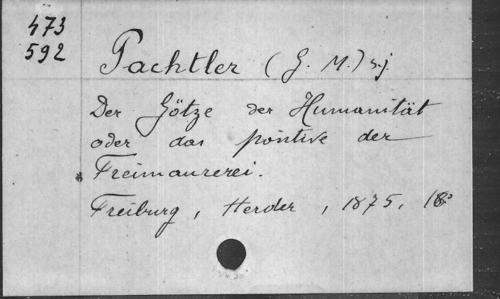 473
592
Pachtler (G. M.) s.j
Der Götze der Humanität
oder das positive der
Freimaurerei.
Freiburg, Herder, 1875, 18º